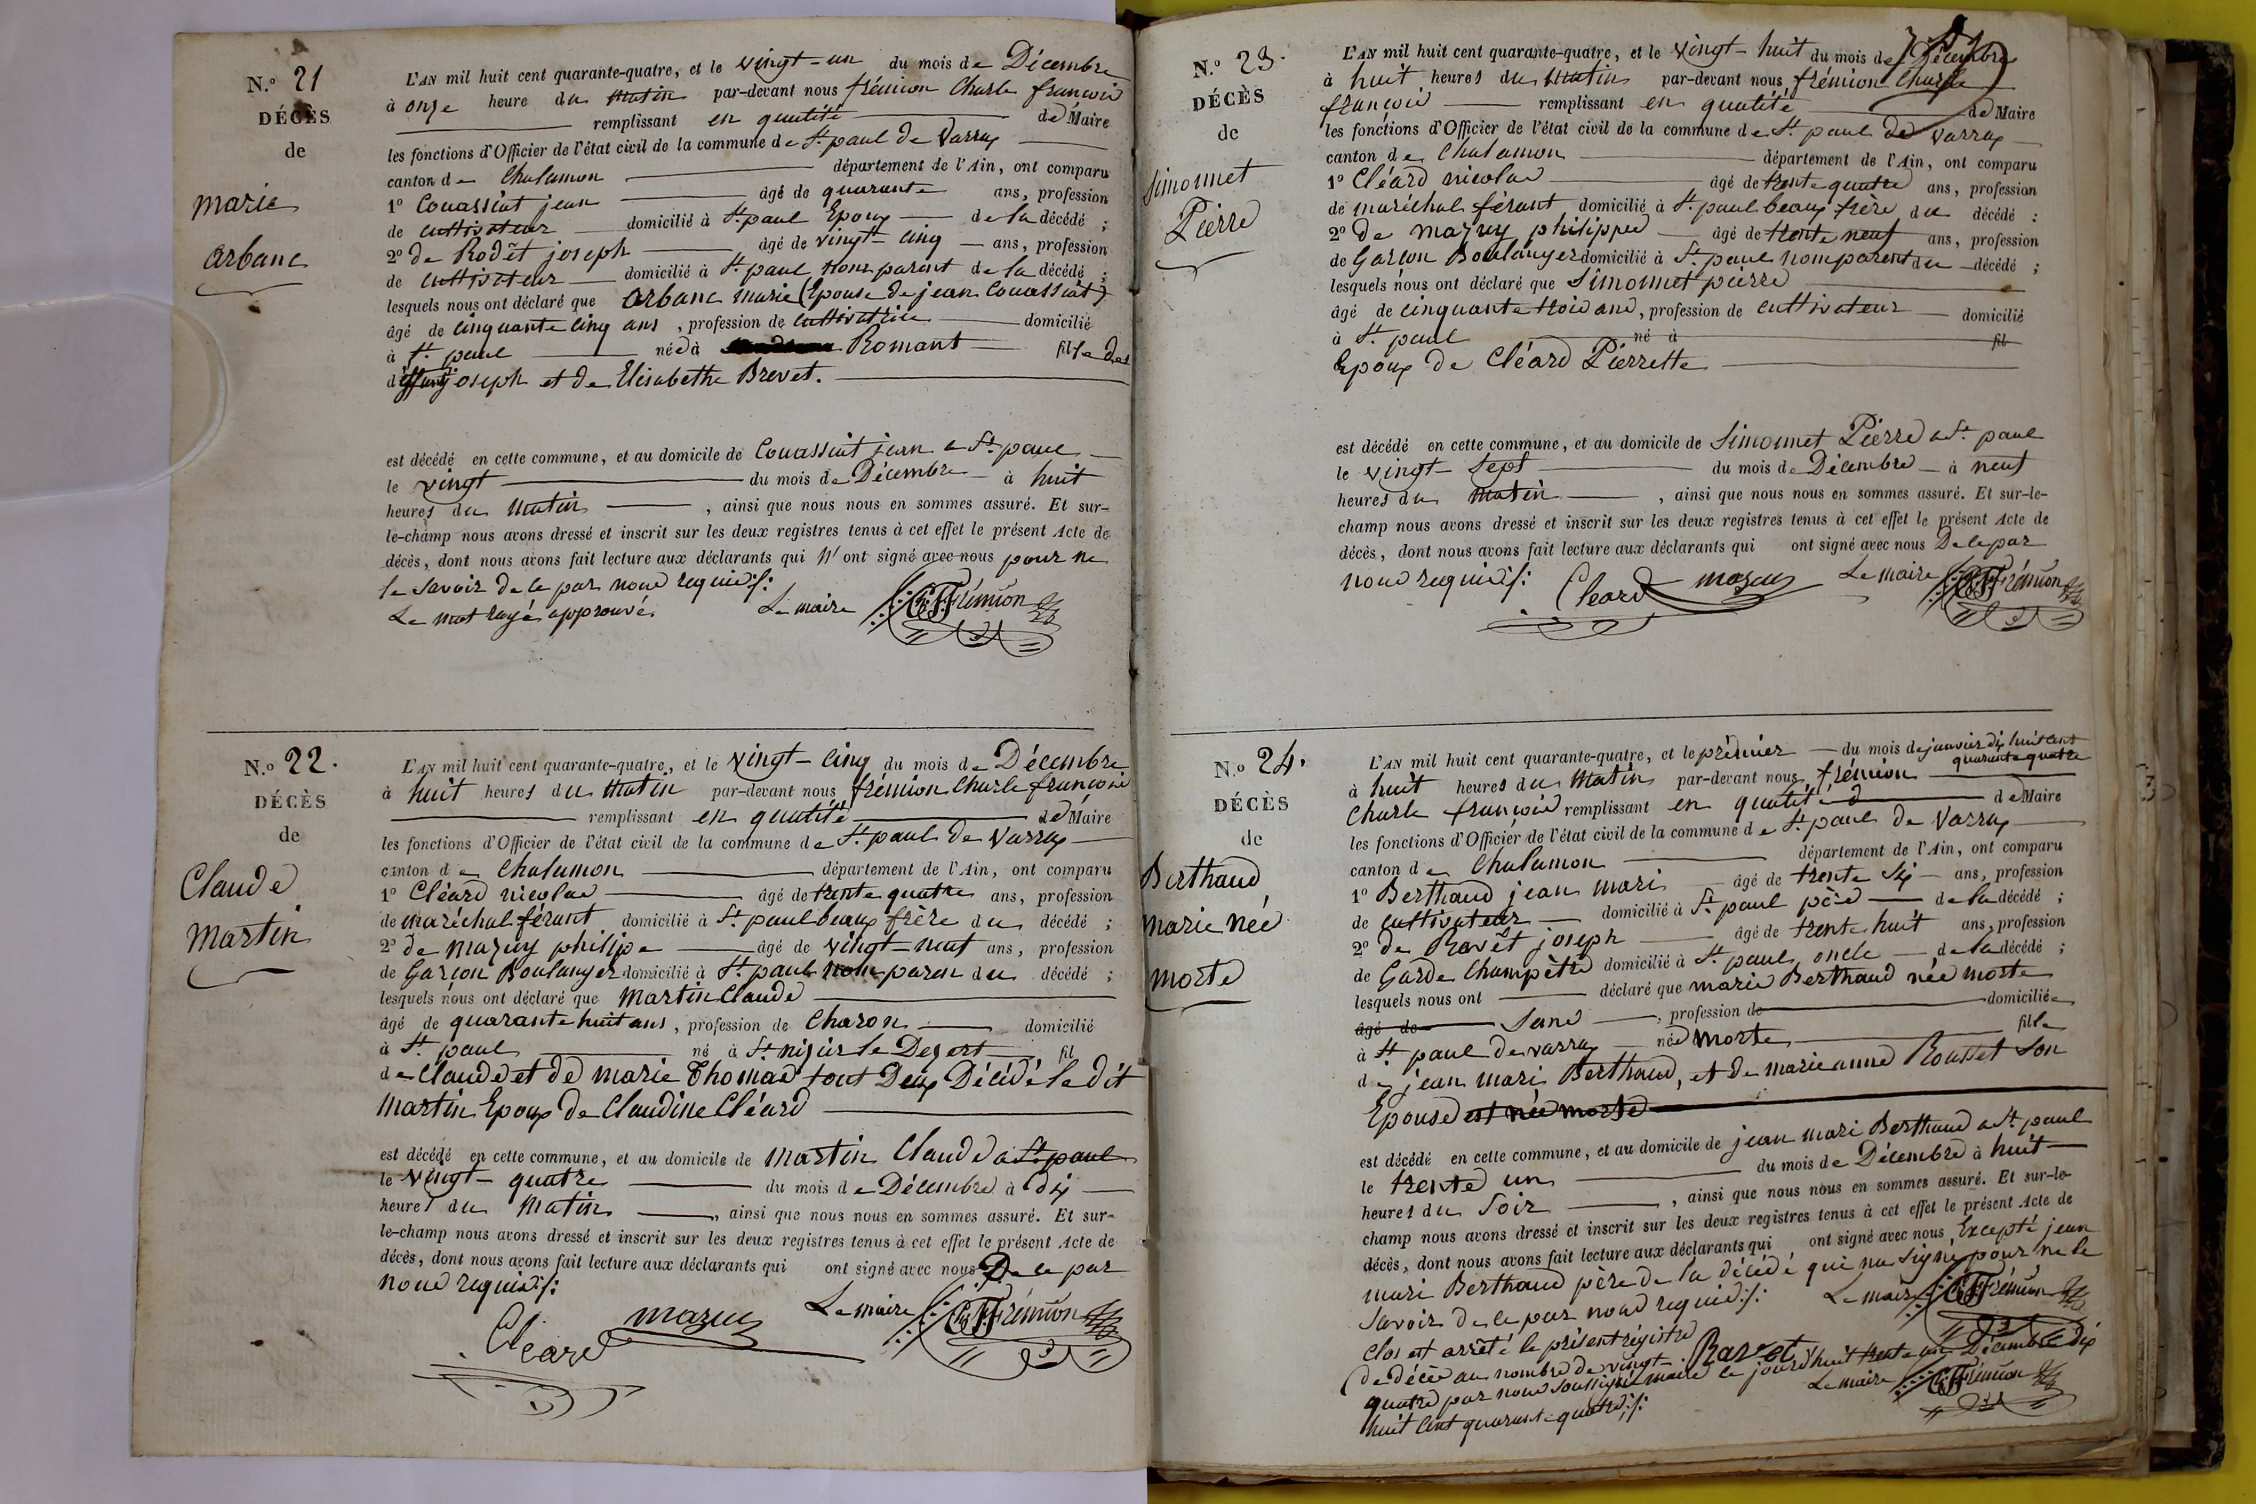 N.o 21
DÉCÈS
de
marie
arbanc
L'AN mil huit cent quarante-quatre, et le vingt-un du mois de Décembre
à onze heure du matin par-devant nous frémion Charle françois
remplissant en qualité de Maire
les fonctions d'Officier de l'état civil de la commune de St paul de Varax
canton de Chalamon département de l'Ain, ont comparu
1o Couassiat jean âgé de quarante ans, profession
de cultivateur domicilié à St paul Epoux de la décédé ;
2o de Rodet joseph âgé de vingt-cinq ans, profession
de cultivateur domicilié à St paul nomparent de la décédé ;
lesquels nous ont déclaré que arbanc marie (Epouse de jean Couassiat)
âgé de cinquante cinq ans, profession de cultivatrice domicilié
à St paul née à Romant fille des
deffunt joseph et de Elisabethe Brevet.
est décédé en cette commune, et au domicile de Couassiat jean a St paul
le vingt du mois de Décembre à huit
heures du matin, ainsi que nous nous en sommes assuré. Et sur-
le-champ nous avons dressé et inscrit sur les deux registres tenus à cet effet le présent Acte de
décès, dont nous avons fait lecture aux déclarants qui n'ont signé avec nous pour ne
le savoir de ce par nous requis :/:
Le mot rayé approuvé. Le maire Ch Frémion
N.o 22.
DÉCÈS
de
Claude
Martin
L'AN mil huit cent quarante-quatre, et le vingt-cinq du mois de Décembre
à huit heures du matin par-devant nous frémion Charle françois
remplissant en qualité de Maire
les fonctions d'Officier de l'état civil de la commune de St paul de Varax
canton de Chalamon département de l'Ain, ont comparu
1o Cléard nicolas âgé de trente quatre ans, profession
de maréchal férant domicilié à St paul beaux frère du décédé ;
2o de mazuy philipe âgé de vingt-neuf ans, profession
de Garçon Boulanger domicilié à St paul nom paren du décédé ;
lesquels nous ont déclaré que Martin Claude
âgé de quarante huit ans, profession de Charon domicilié
à St paul né à St nizier le Dezert fil
de Claude et de marie Thomas tout Deux Décédé le dit
Martin Epoux de Claudine Cléard
est décédé en cette commune, et au domicile de Martin Claude a St paul
le vingt-quatre du mois de Décembre à dix
heures du Matin, ainsi que nous nous en sommes assuré. Et sur-
le-champ nous avons dressé et inscrit sur les deux registres tenus à cet effet le présent Acte de
décès, dont nous avons fait lecture aux déclarants qui ont signé avec nous De ce par
nous requis :/:
Cléard mazuy Le maire Ch Frémion
N.o 23.
DÉCÈS
de
Simonnet
Pierre
L'AN mil huit cent quarante-quatre, et le vingt-huit du mois de Décembre
à huit heures du matin par-devant nous frémion Charle
françois remplissant en qualité de Maire
les fonctions d'Officier de l'état civil de la commune de St paul de Varax
canton de Chalamon département de l'Ain, ont comparu
1o Cléard nicolas âgé de trente quatre ans, profession
de maréchal férant domicilié à St paul beaux frère du décédé :
2o de mazuy philippe âgé de trente neuf ans, profession
de Garçon Boulanger domicilié à St paul nomparent du décédé ;
lesquels nous ont déclaré que Simonnet pierre
âgé de cinquante trois ans, profession de cultivateur domicilié
à St paul né à fil
Epoux de Cléard Pierrette
est décédé en cette commune, et au domicile de Simonnet Pierre a St paul
le vingt-sept du mois de Décembre à neuf
heures du matin, ainsi que nous nous en sommes assuré. Et sur-le-
champ nous avons dressé et inscrit sur les deux registres tenus à cet effet le présent Acte de
décès, dont nous avons fait lecture aux déclarants qui ont signé avec nous De ce par
nous requis :/: Cleard mazuy Le maire Ch Frémion
N.o 24.
DÉCÈS
de
Berthaud
marie née
morte
L'AN mil huit cent quarante-quatre, et le prémier du mois de janvier dix huit cent
quarante quatre
à huit heures du Matin par-devant nous frémion
Charle françois remplissant en qualité de Maire
les fonctions d'Officier de l'état civil de la commune de St paul de Varax
canton de Chalamon département de l'Ain, ont comparu
1o Berthaud jean mari âgé de trente six ans, profession
de cultivateur domicilié à St paul père de la décédé ;
2o de Ravet joseph âgé de trente huit ans, profession
de Garde Champètre domicilié à St paul oncle de la décédé ;
lesquels nous ont déclaré que marie Berthaud née morte
âgé de Sans, profession de domiciliée
à St paul de varax née morte fille
de jean mari Berthaud, et de marie anne Rousset son
Epouse est née morte
est décédé en cette commune, et au domicile de jean mari Berthaud a St paul
le trente un du mois de Décembre à huit
heures du soir, ainsi que nous nous en sommes assuré. Et sur-le-
champ nous avons dressé et inscrit sur les deux registres tenus à cet effet le présent Acte de
décès, dont nous avons fait lecture aux déclarants qui ont signé avec nous Excepté jean
mari Berthaud père de la décédé qui na signé pour ne le
savoir de ce par nous requis :/: Le maire Ch Frémion
Clos et arrêté le présent régistre
de décès au nombre de vingt- Ravet
quatre par nous soussigné maire ce jourd'huit trente un Décembre dix
huit cent quarante quatre :/: Le maire Ch Frémion